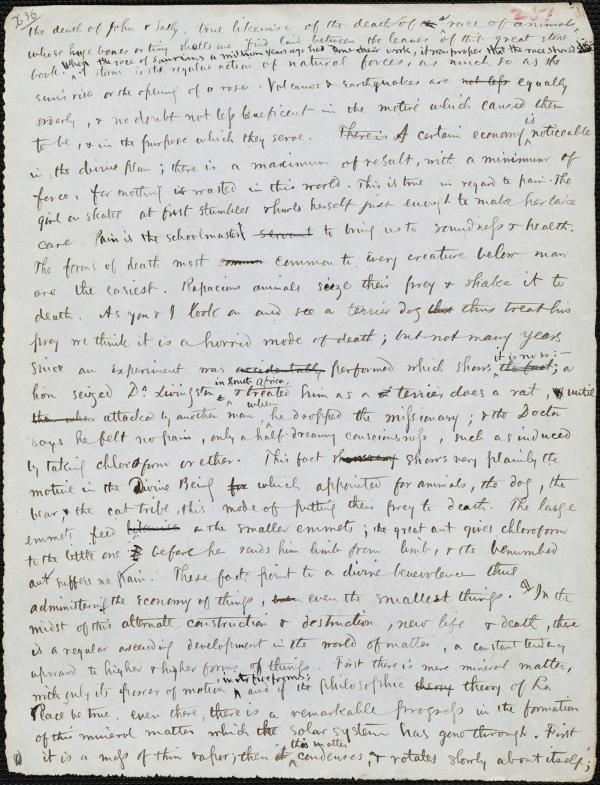 236
251
the death of John & Sally, true likewise of the death of a race of animals,
whose huge bones or tiny shells are find laid between the leaves of that great stone
When the race of saurians a million years ago had done their work, it was proper that the race should
book. of them is the regular action of natural forces, as much so as the
sun's rise or the opening of a rose. Volcanos & earthquakes are not less equally
orderly, & no doubt not less beneficent in the motive which caused them
to be, & in the purpose which they serve. There is A certain economy is noticeable
in the divine plan; there is a maximum of result, with a minimum of
force, for nothing is wasted in this world. This is true in regard to pain. The
girl on skates at first stumbles & hurts herself just enough to make her take
care. Pain is the schoolmaster servant to bring us to soundness & health.
The forms of death most common common to every creature below man
are the easiest. Rapacious animals seize their prey & shake it to
death. As you & I look on and see a terrier dog that thus treat his
prey we think it is a horrid mode of death; but not many years
it is no so:—
since an experiment was accidentally performed which shows the fact; a
in South Africa,
lion seized Dr. Livingston & treated him as a terrier does a rat, & until
when
then when attacked by another man, he dropped the missionary; & the Doctor
says he felt no pain, only a half-dreamy consciousness, such as induced
by taking chloroform or ether. This fact shows very plainly the
motive in the Divine Being for which appointed for animals, the dog, the
bear, & the cat tribe, this mode of putting their prey to death. The large
emmets feed on the smaller emmets; the great ant gives chloroform
to the little one before he rends him limb from limb, & the benumbed
ant suffers no pain. These facts point to a divine benevolence thus
administering the economy of things, even the smallest things. In the
midst of this alternate construction & destruction, new life & death, there
is a regular ascending development in the world of matter, a constant tendency
upward to higher & higher forms of things. First there is mere mineral matter,
into fine forms;
with only its power of motion and if the philosophic theory theory of La
Place be true, even there, there is a remarkable progress in the formation
of this mineral matter which the solar system has gone through. First
this matter
it is a mass of thin vapor; then it condenses, & rotates slowly about itself;